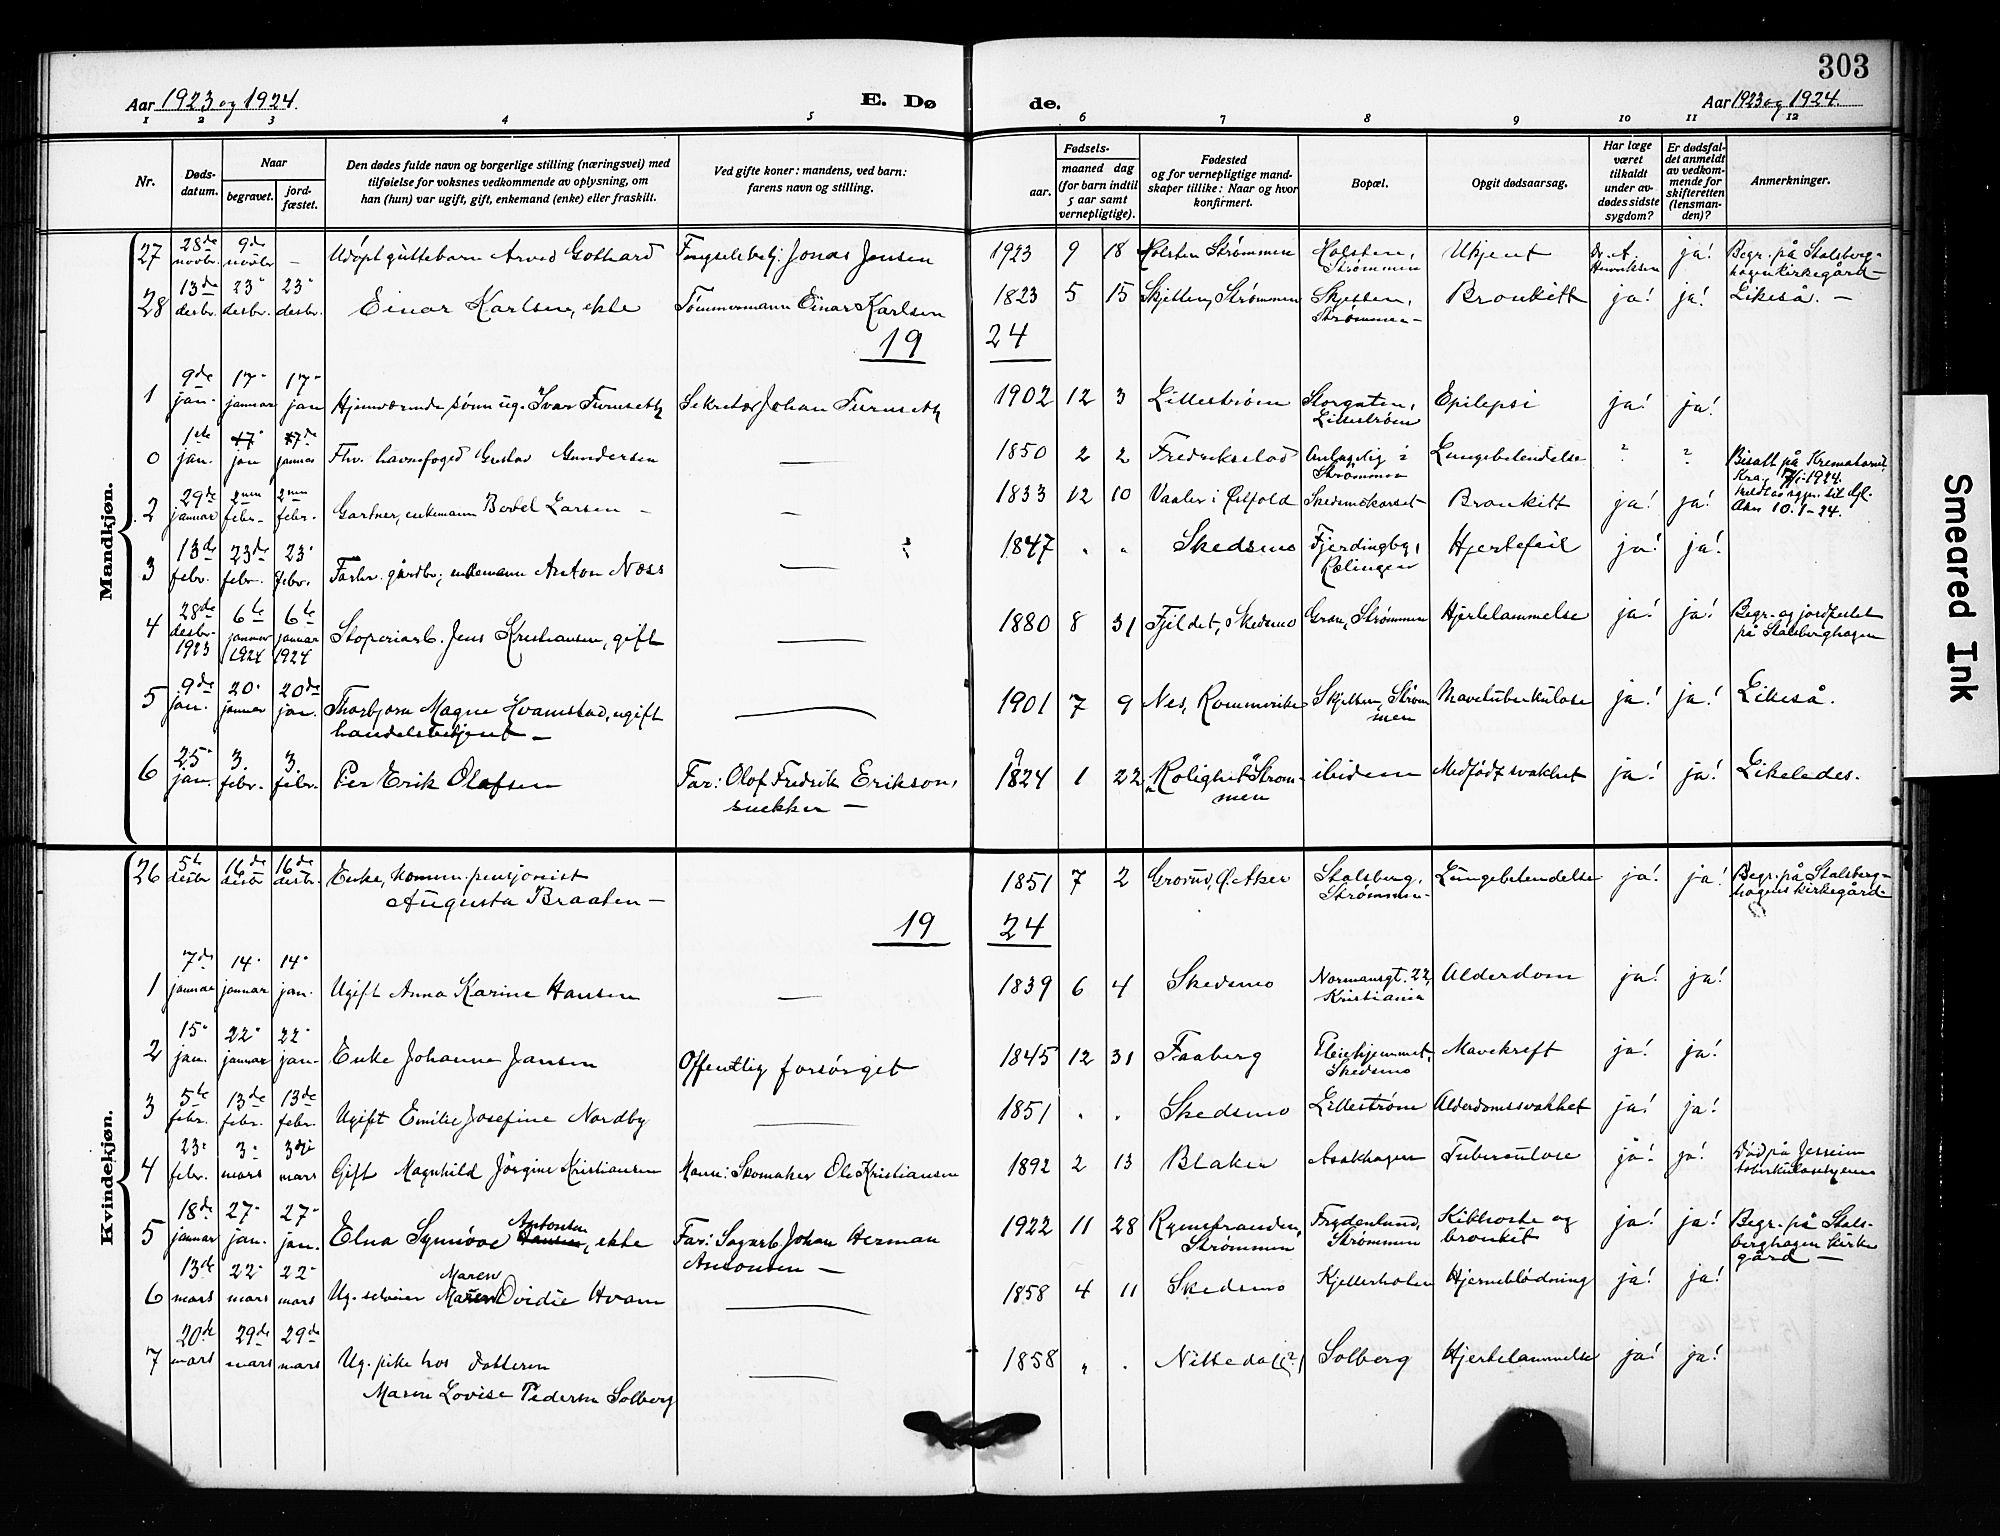 303
Aar 1923 og 1924.
E. Dø de.
Aar 1923 og 1924.
1 2 3 4 5 6 7 8 9 10 11 12
Nr.
Døds-
datum.
Naar
begravet.
jord-
fæstet.
Den dødes fulde navn og borgerlige stilling (næringsvei) med
tilføielse for voksnes vedkommende av oplysning, om
han (hun) var ugift, gift, enkemand (enke) eller fraskilt.
Ved gifte koner: mandens, ved barn:
farens navn og stilling.
Fødsels-
aar.
maaned dag
(for barn indtil
5 aar samt
vernepligtige).
Fødested
og for vernepligtige mand-
skaper tillike: Naar og hvor
konfirmert.
Bopæl.
Opgit dødsaarsag.
Har læge
været
tilkaldt
under av-
dødes sidste
sygdom?
Er dødsfal-
det anmeldt
av vedkom-
mende for
skifteretten
(lensman-
den)?
Anmerkninger.
Mandkjøn.
27 28de novbr. 9de novbr. – Udöpt guttebarn Arved Gothard Fængselsbetj. Jonas Jensen 1923 9 18 Holsten Strømmen Holsten, Strømmen Ukjent Dr. A. Henriksen ja! Begr. på Stalsberg-
hagen kirkegård –
28 13de desbr. 23' desbr. 23' desbr. Einar Karlsen, ekte Tömmermann Einar Karlsen 1823 5 15 Skjetten, Strømmen Skjetten, Strømmen – Bronkitt ja! ja! Likeså. –
19 24
1 9de jan. 17' januar 17' jan Hjemværende sønn ug. Ivar Furuseth Sekretær Johan Furuseth 1902 12 3 Lillestrøm Storgaten, Lillestrøm Epilepsi ja! ja!
0 1ste jan. 17' jan 17de januar Fhv. havnefoged Gustav Gundersen — 1850 2 2 Fredriksstad Strømmen Lungebetendelse ? ? Bisatt på Krematoriet
1924.
10.1–24.
2 29de januar 2nen febr. 2nen febr. Gartner, enkemann Bertel Larsen – – 1833 12 10 Vaaler i Østfold Skedsmokorset Bronkitt ja! ja!
3 13de febr. 23de febr. 23' febr. Forhv. gårdbr; enkemann Anton Næss — ? 1847 " " Skedsmo Fjerdingby, Rælingen Hjertefeil ja! ja!
4 28de desbr. 1923 6te januar 1924 6te januar 1924 Støperiarb. Jens Kristiansen, gift — 1880 8 31 Fjeldet, Skedsmo Gran, Strømmen Hjertelammelse ja! ja! Begr. og jordfestet
på Stalsberghagen
5 9de jan. 20' januar 20de jan. Thorbjørn Magne Hvamstad, ugift
handelsbetjent – — 1901 7 9 Nes, Rommerike Skjetten, Strøm
men Mavetuberkulose ja! ja! Likeså.
6 25' jan. 3. febr. 3. febr. Per Erik Olafsen Far: Olof Fredrik Erikson,
snekker – 1824 9 1 22 "Rolighet" Strøm-
men ibidem Medfødt svakhet ja! ja! Likeledes.
Kvindekjøn.
26 5te desbr 16de desbr 16de desbr. Enke, komm. pensjonist
Augusta Braaten – 1851 7 2 Grorud, Ø. Aker Stalsberg, Strømmen – Lungebetendelse ja! ja! Begr. på Stalsberg-
hagens kirkegård.
19 24
1 7de januar 14' januar 14' jan. Ugift Anna Karine Hansen — 1839 6 4 Skedsmo Normansgt. 22, Kristiania Alderdom ja! ja!
2 15' jan. 22' januar 22' jan. Enke Johanne Jansen Offentlig forsörget 1845 12 31 Faaberg Pleiehjemmet, Skedsmo Mavekreft ja! ja!
3 5te febr. 13de febr. 13de febr. Ugift Emilie Josefine Nordby — 1851 " " Skedsmo Lillestrøm Alderdomssvakhet ja! ja!
4 23' febr. 3' mars 3dje mars Gift Magnhild Jörgine Kristiansen Mann: Skomaker Ole Kristiansen 1892 2 13 Blaker Asakhagen Tuberculose ja! ja! Död på Jessheim
tuberkulosehjem
5 18de januar 27' jan. 27' jan. Elna Synnöve Antonsen Jansen, ekte Far: Sagarb. Johan Herman
Antonsen – 1922 11 28 Strømmen Frydenlund, Strømmen Kikhoste og
bronkit ja! ja! Begr. på Stals-
berghagen kirke
gård –
6 13de mars 22' mars 22' mars Ug. Maren Maren Ovidie Hvam — 1858 4 11 Skedsmo Kjellerholen Hjerneblödning ja! ja!
7 20de mars 29de mars 29de mars Ug. pike hos datteren
Maren Lovise Pedersen Solberg — 1858 " " Nittedal (?) Solberg Hjertelammelse ja! ja!
Smeared Ink